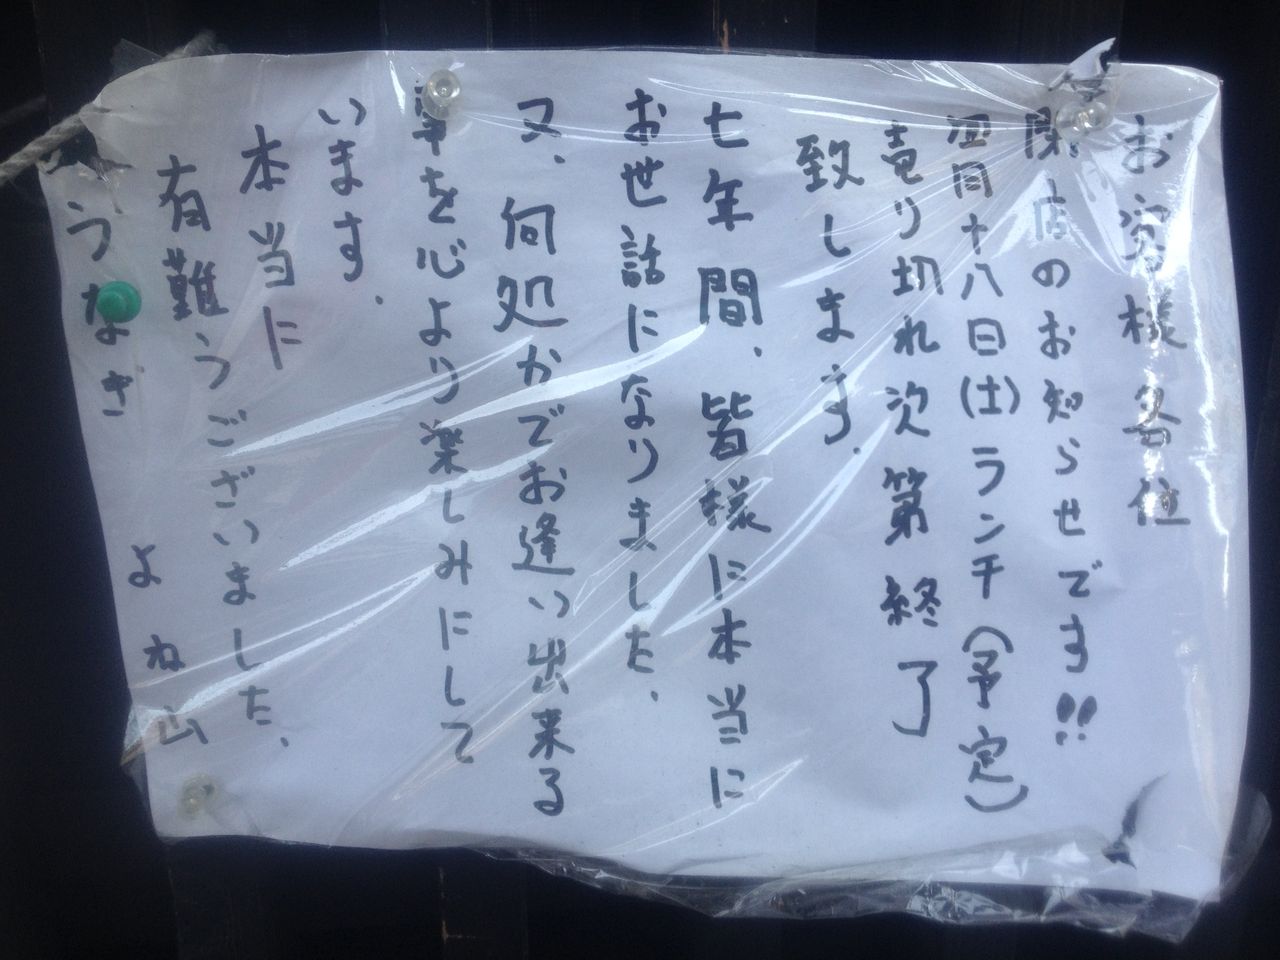 お客様各位
閉店のお知らせです!!
四月十八日(土)ランチ(予定)
売り切れ次第終了
致します.
七年間、皆様に本当に
お世話になりました、
又、何処かでお逢い出来る
事を心より楽しみにして
います.
本当に
有難うございました、
うなぎ よね山